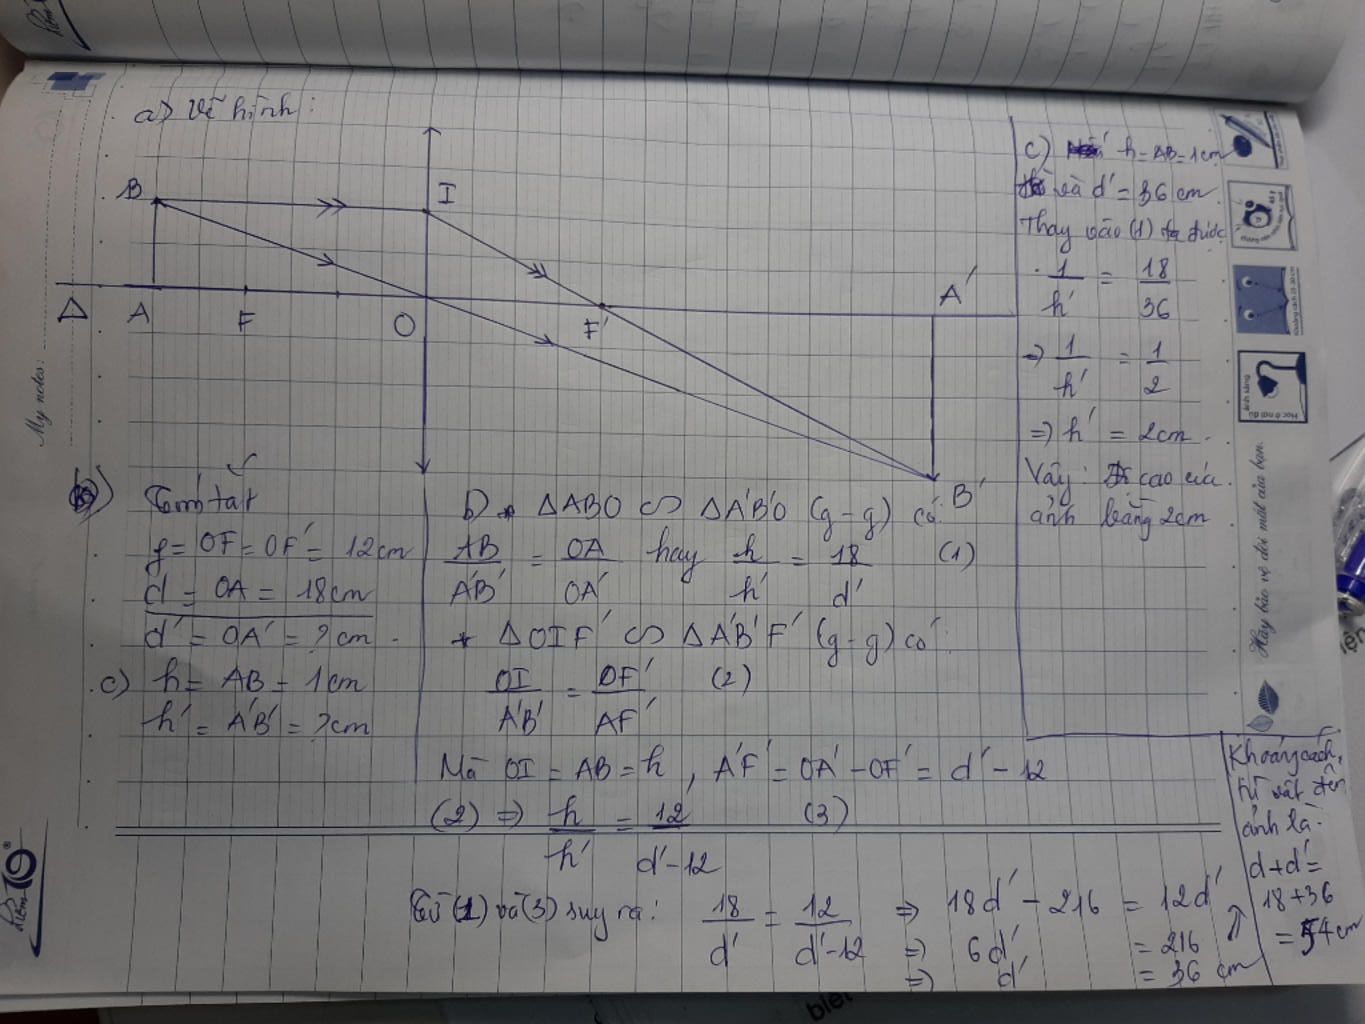 a) Vẽ hình:
B
I
Δ
A
F
O
F'
A'
B'
Tóm tắt
f = OF = OF' = 12cm
d = OA = 18cm
d' = OA' = ?cm
c) h = AB = 1cm
h' = A'B' = ?cm
b) * ΔABO ∽ ΔA'B'O (g-g) có:
AB/A'B' = OA/OA' hay h/h' = 18/d' (1)
* ΔOIF' ∽ ΔA'B'F' (g-g) có:
OI/A'B' = OF'/AF' (2)
Mà OI = AB = h, A'F' = OA' - OF' = d' - 12
(2) => h/h' = 12/d'-12 (3)
Từ (1) và (3) suy ra: 18/d' = 12/d'-12 => 18d' - 216 = 12d'
=> 6d' = 216
=> d' = 36 cm
Khoảng cách
từ vật đến
ảnh là:
d+d' =
18+36
= 54cm
c) h = AB = 1cm
và d' = 36 cm
Thay vào (1) ta được
1/h' = 18/36
=> 1/h' = 1/2
=> h' = 2cm.
Vậy: độ cao của
ảnh bằng 2cm
My notes:
Hãy bảo vệ đôi mắt của bạn.
điểm 10